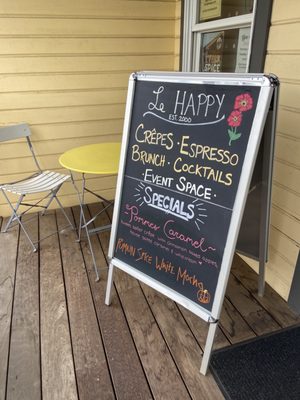 Le HAPPY
EST. 2000
CRÊPES · ESPRESSO
BRUNCH · COCKTAILS
· EVENT SPACE ·
SPECIALS
Pommes Caramel
PUMPKIN SPICE WHITE MOCHA
SPACE